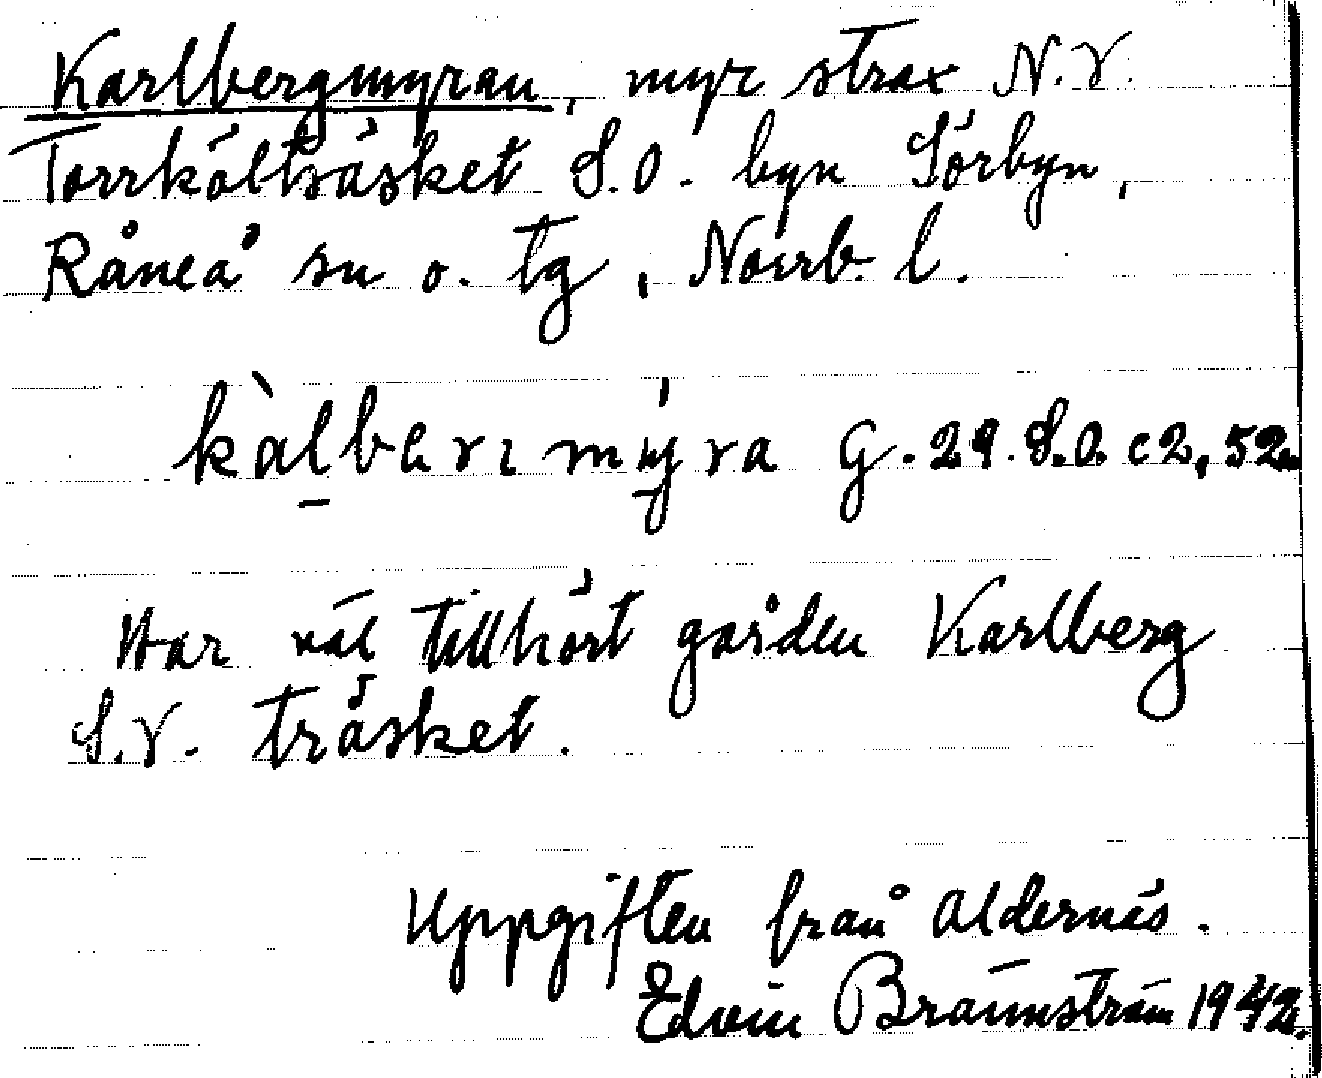 Karlbergmyran, myr strax N.V.
Torrkölträsket S.O. byn Sörbyn,
Råneå sn o. tg, Norrb. l.
G. 29. S.O. c2, 52.
Har väl tillhört gården Karlberg
S.V. träsket.
Uppgiften från Aldernäs.
Edvin Brännström 1942.